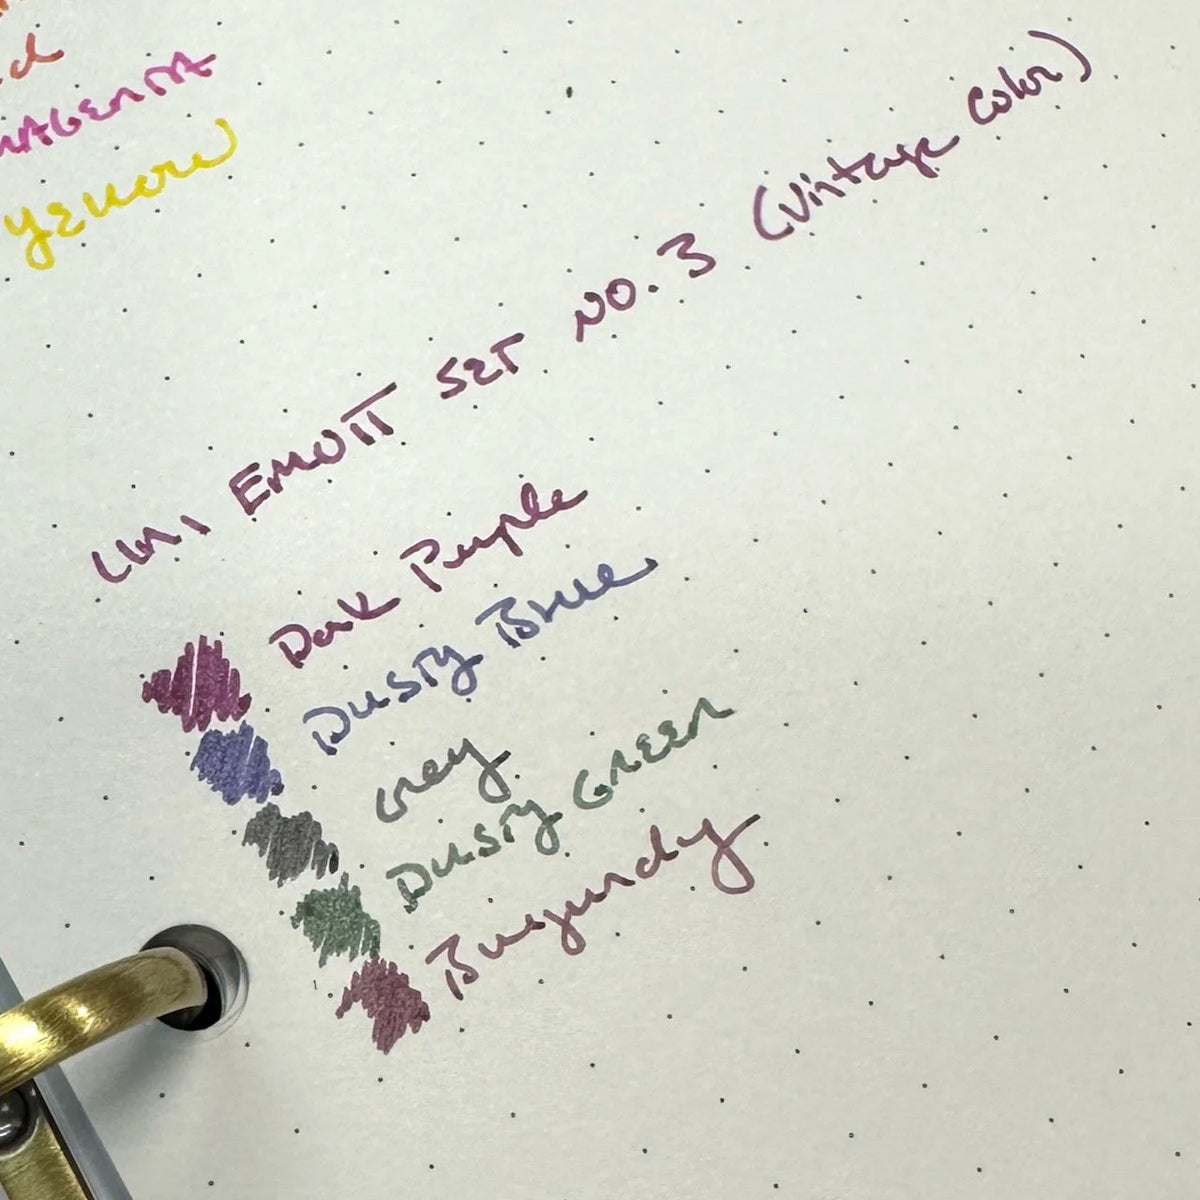 MAGENTA
YELLOW
UNI EMOTT SET NO. 3 (Vintage Color)
Dark Purple
Dusty Blue
Grey
Dusty Green
Burgundy